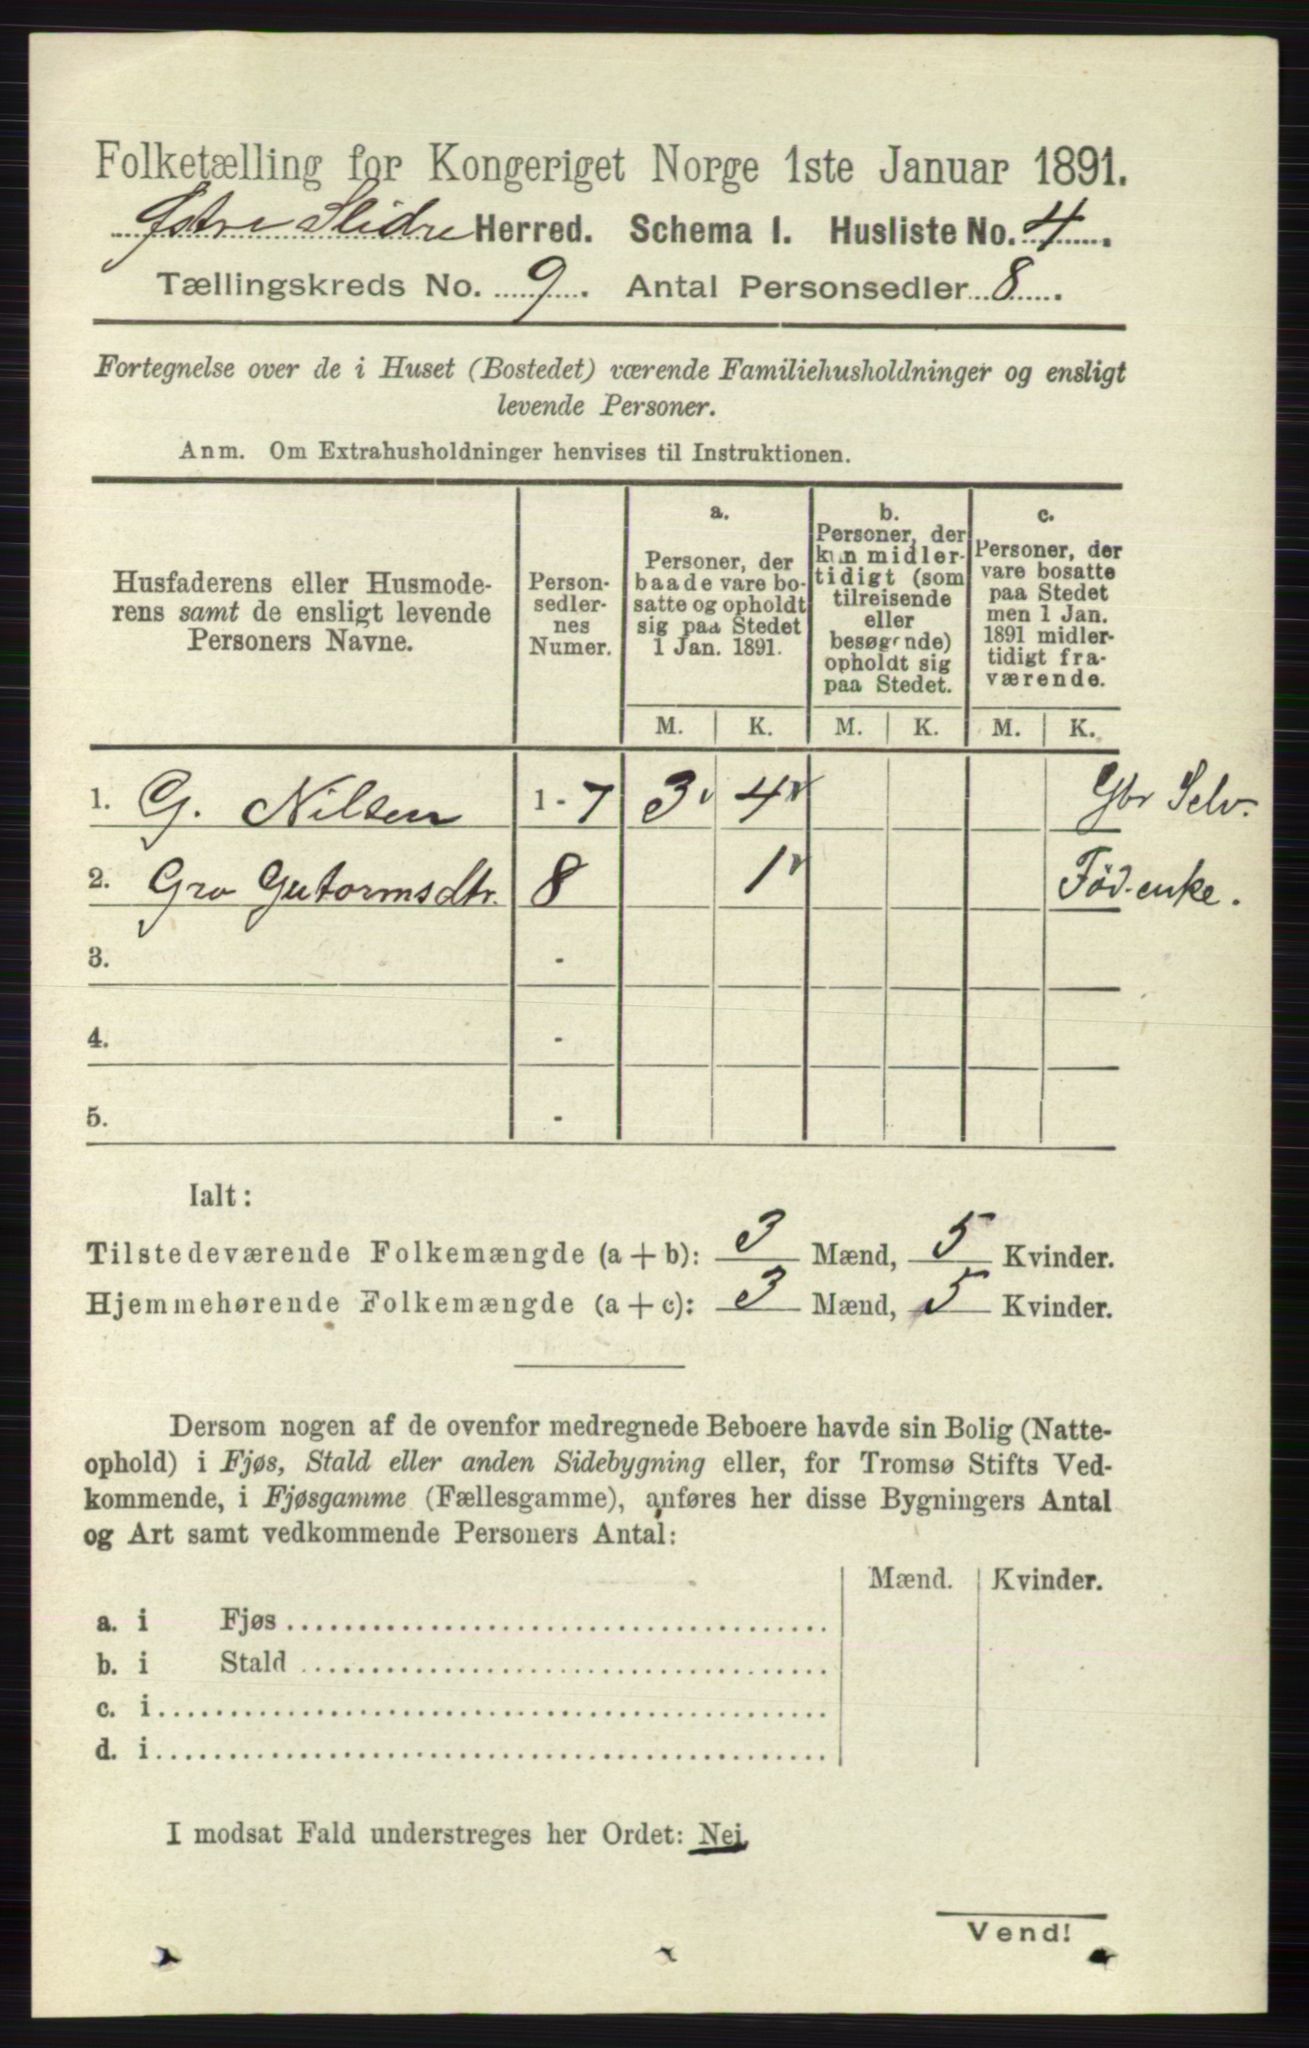 Folketælling for Kongeriget Norge 1ste Januar 1891.
Østre Slidre Herred. Schema I. Husliste No. 4.
Tællingskreds No. 9. Antal Personsedler 8.
Fortegnelse over de i Huset (Bostedet) værende Familiehusholdninger og ensligt
levende Personer.
Anm. Om Extrahusholdninger henvises til Instruktionen.
Husfaderens eller Husmode-
rens samt de ensligt levende
Personers Navne.
Person-
sedler-
nes
Numer.
a.
Personer, der
baade vare bo-
satte og opholdt
sig paa Stedet
1 Jan. 1891.
b.
Personer, der
kun midler-
tidigt (som
tilreisende
eller
besøgende)
opholdt sig
paa Stedet.
c.
Personer, der
vare bosatte
paa Stedet
men 1 Jan.
1891 midler-
tidigt fra-
værende.
M. K. M. K. M. K.
1. G. Nilsen 1 - 7 3 4 Gbr Selv.
2. Gro Gutormsdtr. 8 1 Fød-enke.
3. -
4. -
5. -
Ialt:
Tilstedeværende Folkemængde (a + b): 3 Mænd, 5 Kvinder.
Hjemmehørende Folkemængde (a + c): 3 Mænd, 5 Kvinder.
Dersom nogen af de ovenfor medregnede Beboere havde sin Bolig (Natte-
ophold) i Fjøs, Stald eller anden Sidebygning eller, for Tromsø Stifts Ved-
kommende, i Fjøsgamme (Fællesgamme), anføres her disse Bygningers Antal
og Art samt vedkommende Personers Antal:
Mænd. Kvinder.
a. i Fjøs
b. i Stald
c. i
d. i
I modsat Fald understreges her Ordet: Nei
Vend!